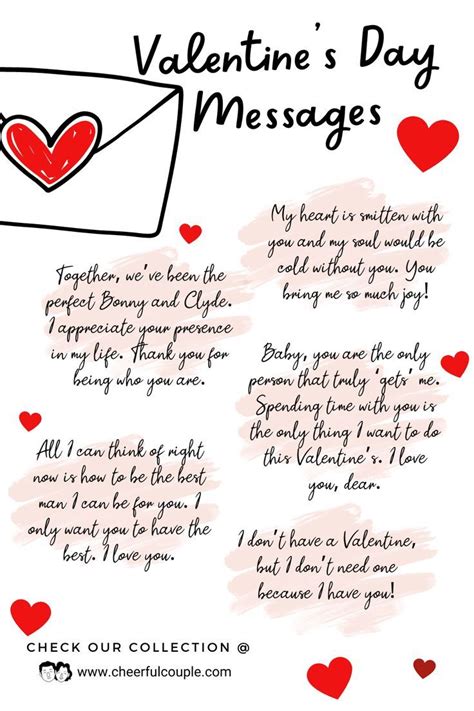 Valentine's Day
Messages
My heart is smitten with
you and my soul would be
cold without you. You
bring me so much joy!
Together, we've been the
perfect Bonny and Clyde.
I appreciate your presence
in my life. Thank you for
being who you are.
Baby, you are the only
person that truly 'gets' me.
Spending time with you is
the only thing I want to do
this Valentine's. I love
you, dear.
All I can think of right
now is how to be the best
man I can be for you. I
only want you to have the
best. I love you.
I don't have a Valentine,
but I don't need one
because I have you!
CHECK OUR COLLECTION @
www.cheerfulcouple.com